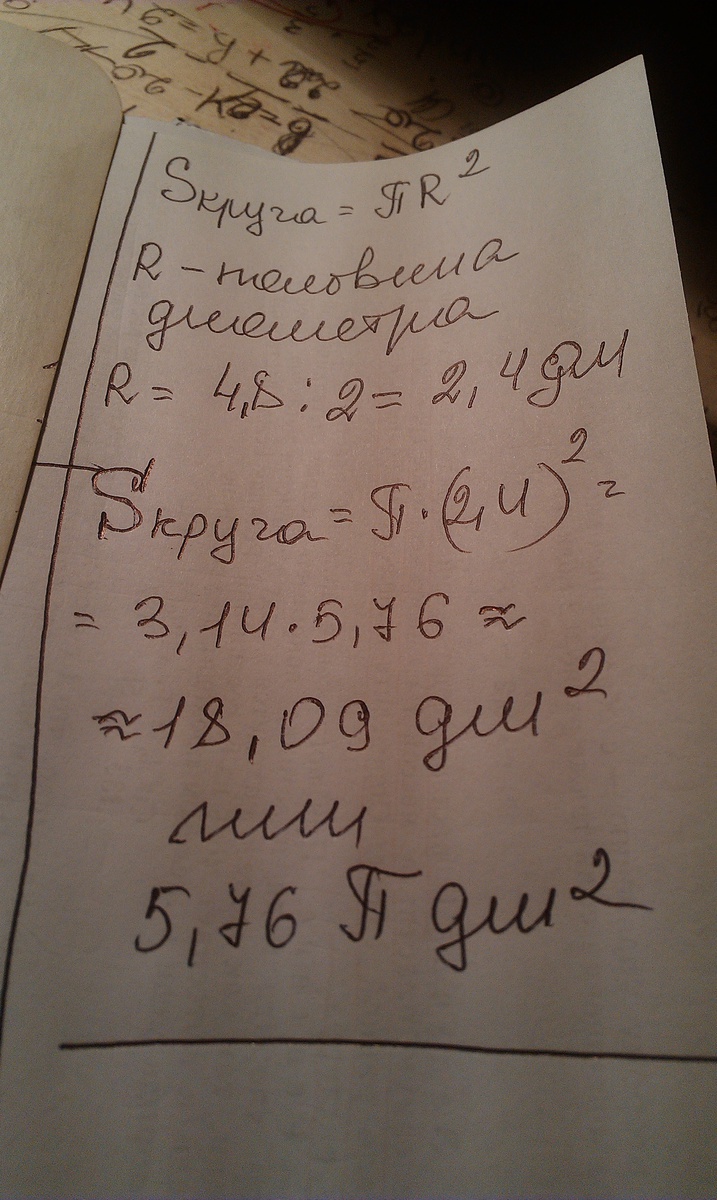 Sкруга = πR²
R – половина
диаметра
R = 4,8 : 2 = 2,4 дм
Sкруга = π · (2,4)² =
= 3,14 · 5,76 ≈
≈ 18,09 дм²
или
5,76 π дм²